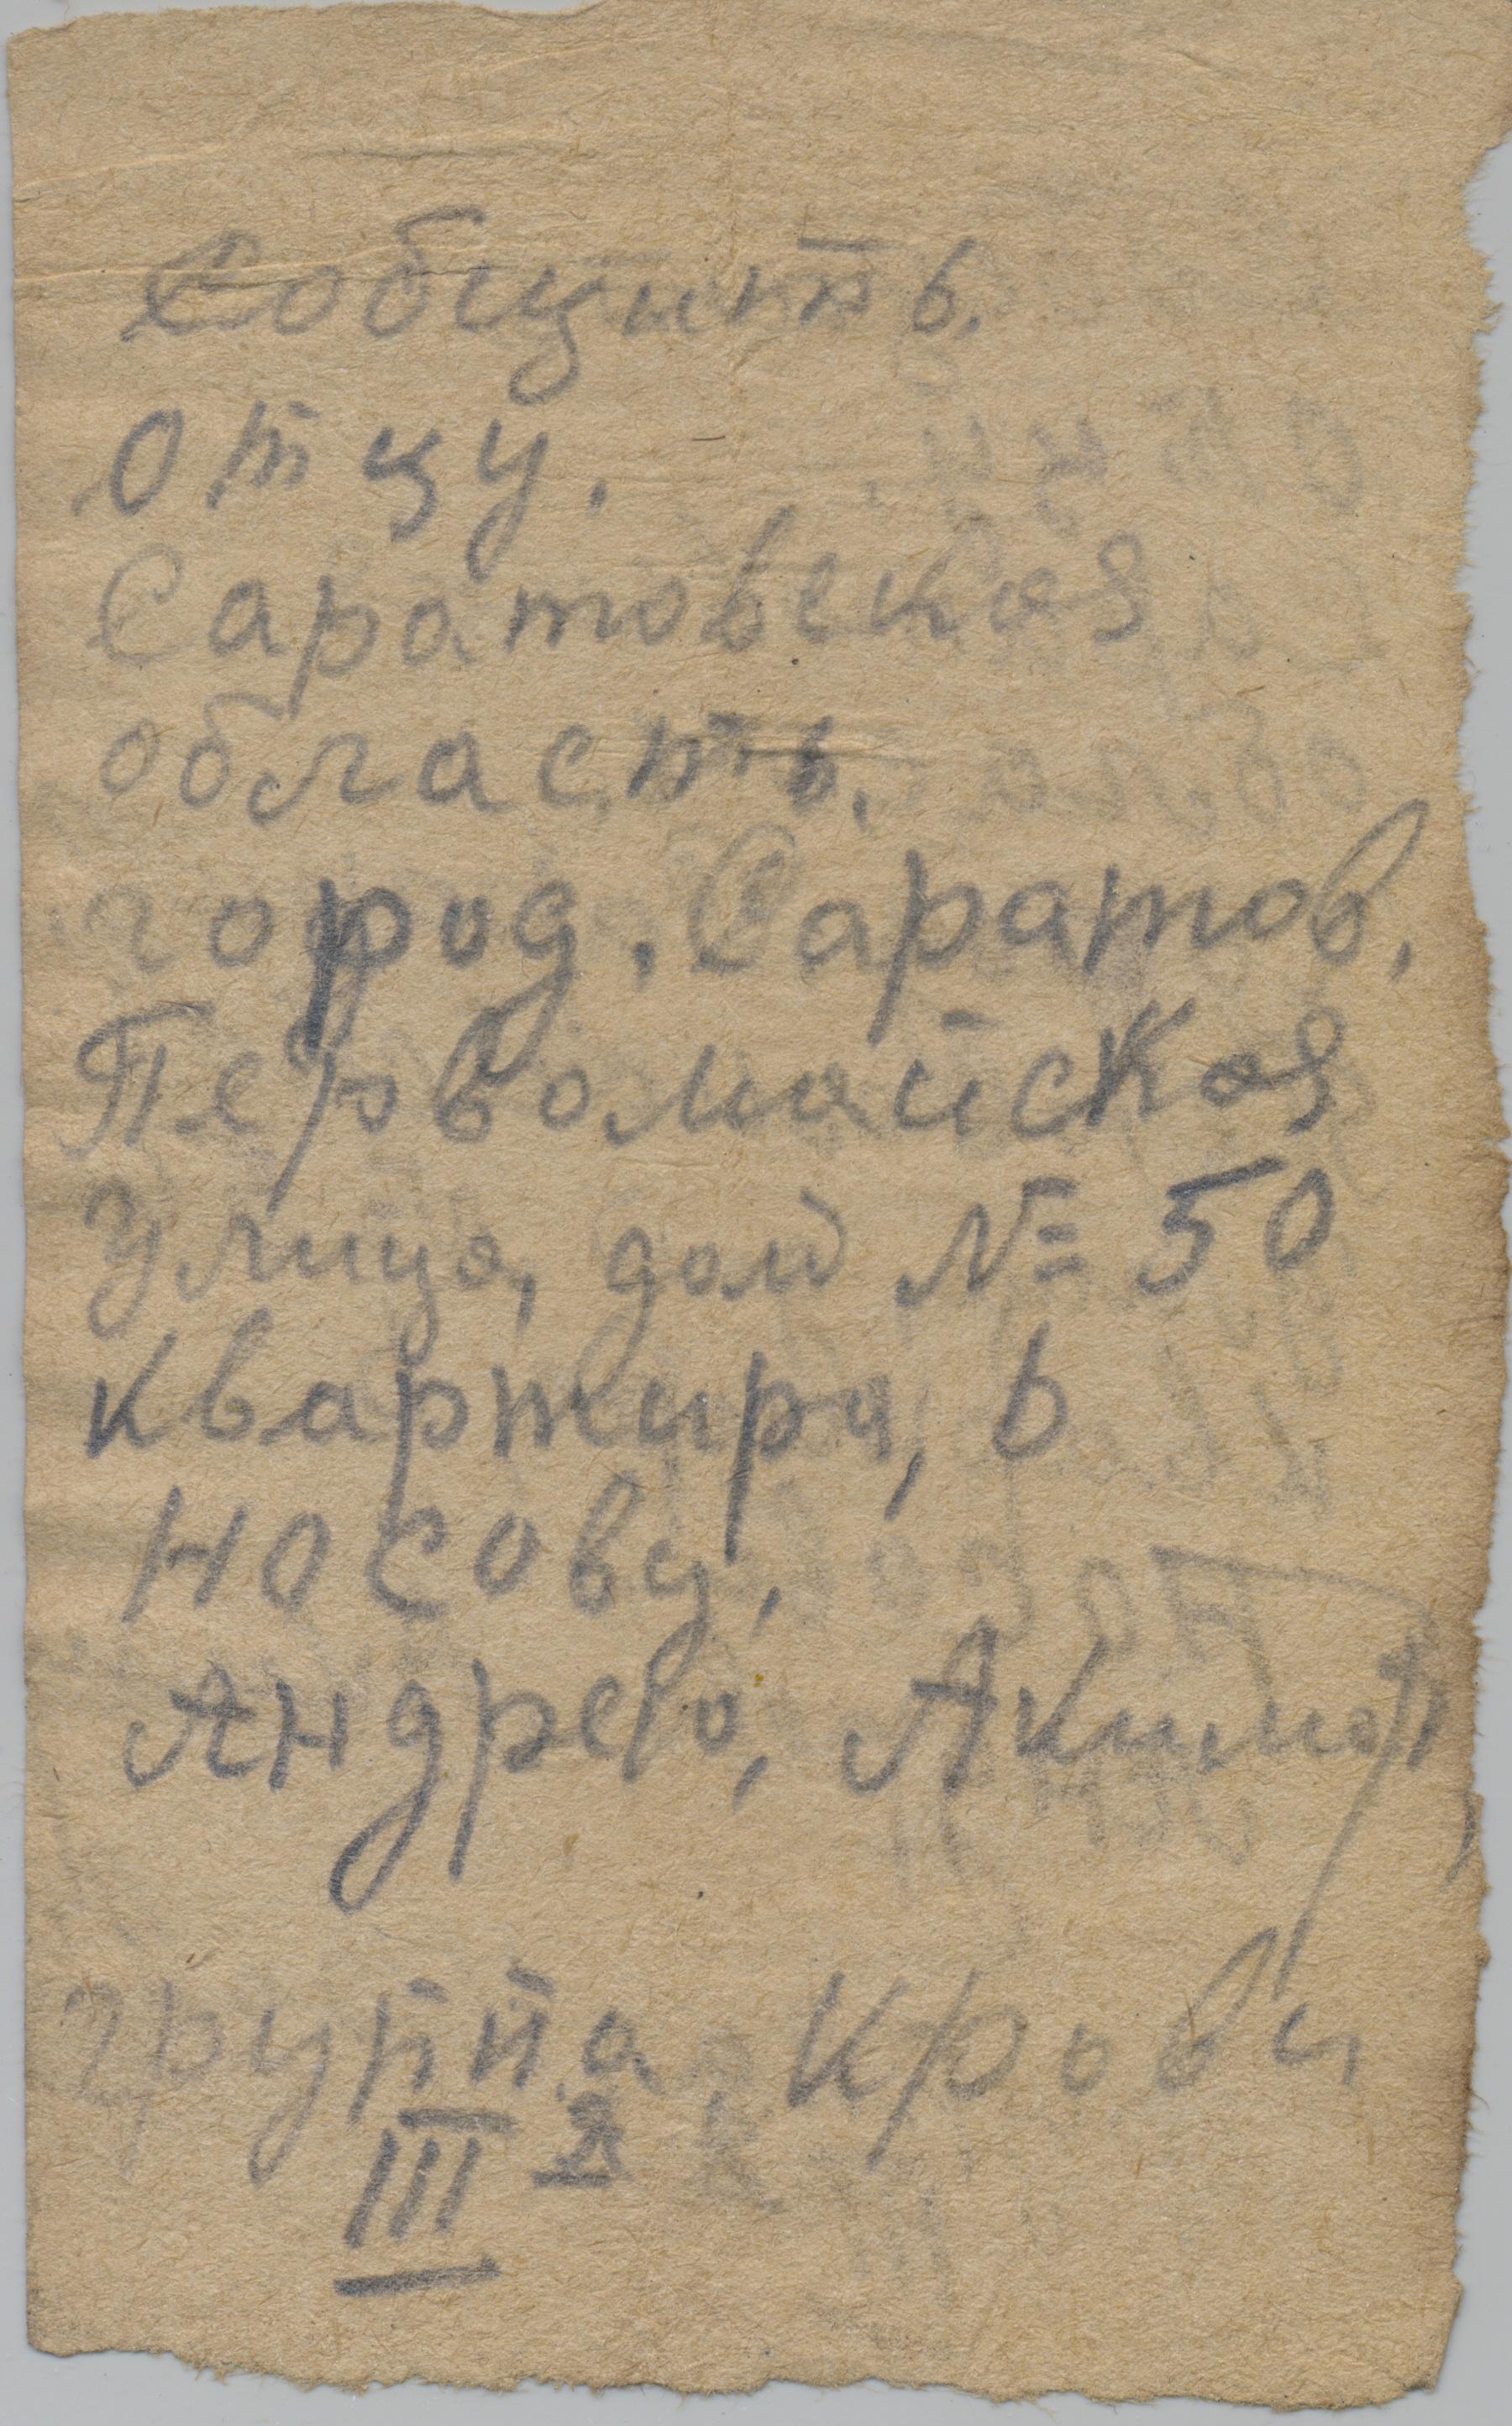 Собщить.
отцу.
Саратовская
область.
город. Саратов.
Первомайская
Улица, дом № 50
квартира, 6
Носову,
Андрею, Акимов
группа крови
III